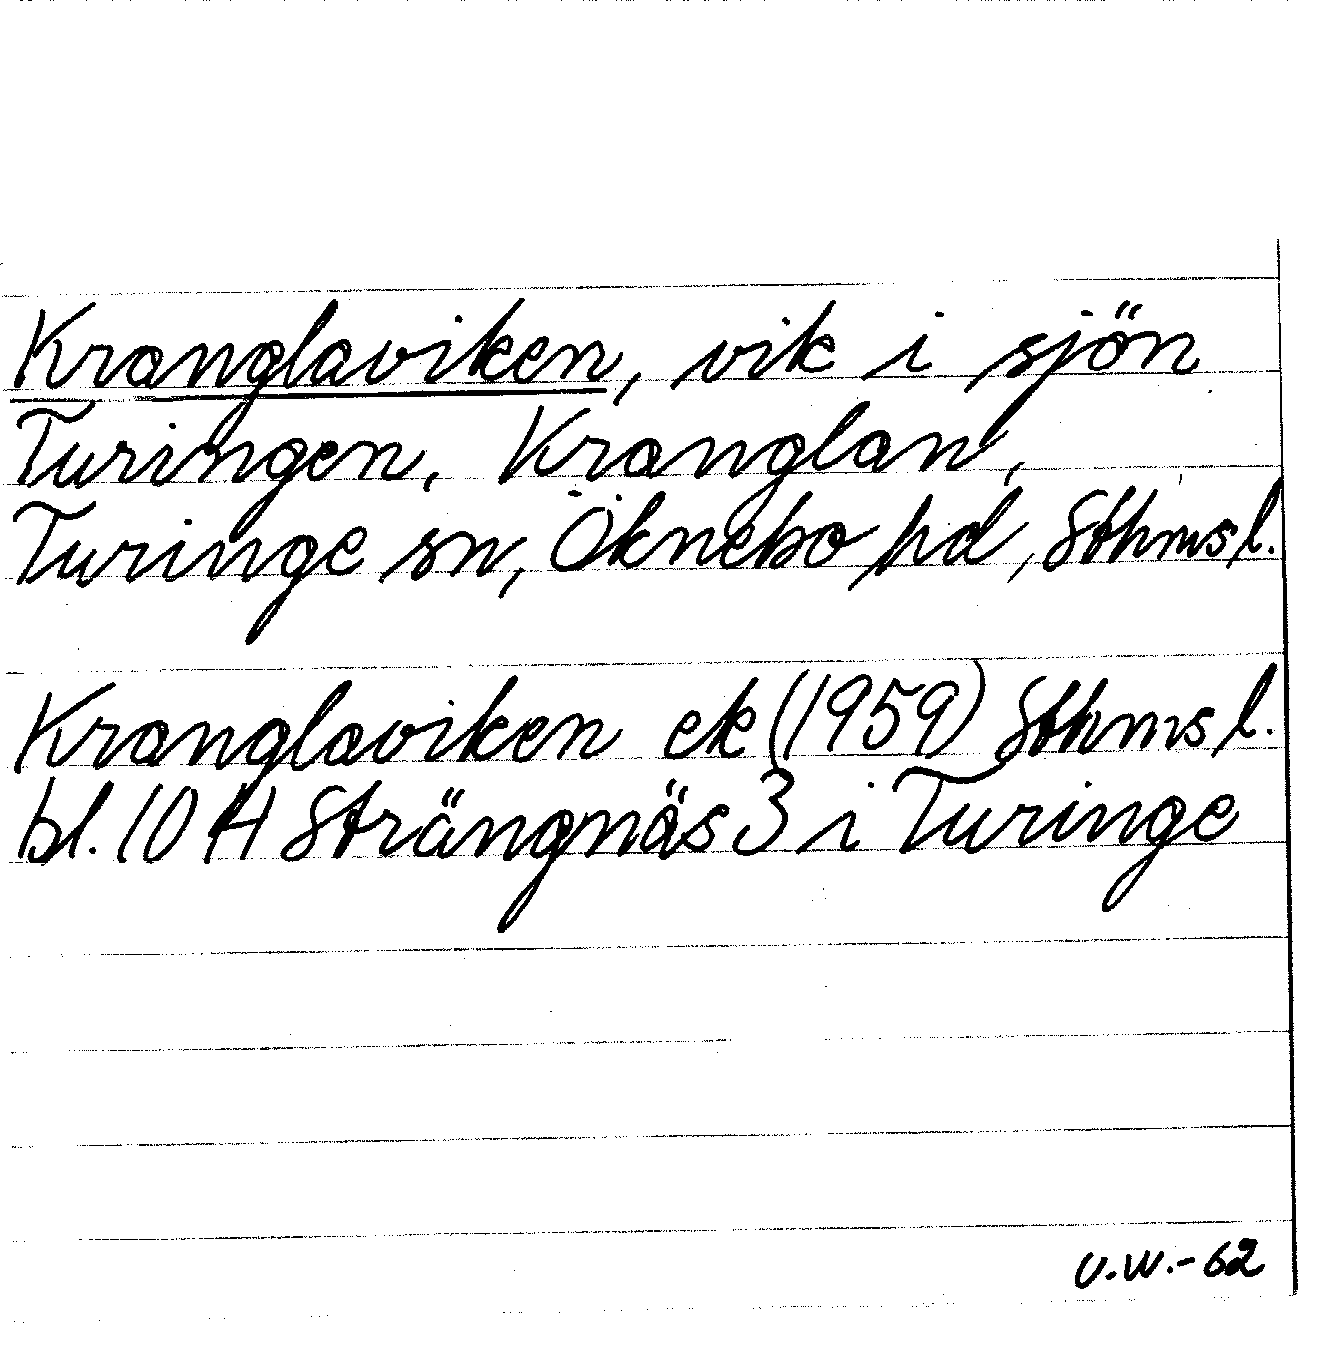 Kranglaviken, vik i sjön
Turingen, Kranglan,
Turinge sn, Öknebo hd, Sthms l.
Kranglaviken ek (1959) Sthms l.
bl. 10 H Strängnäs 3 i Turinge
U.W.-62